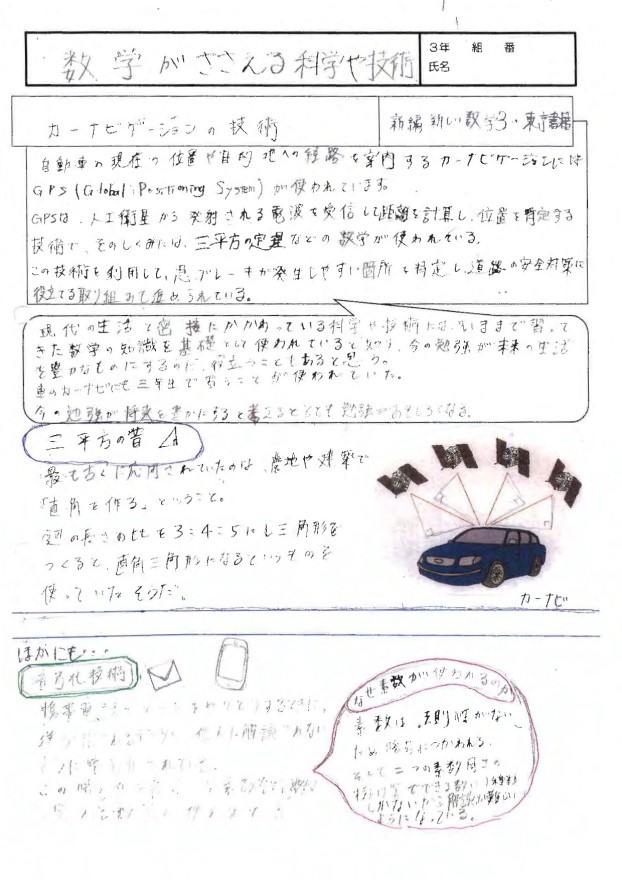 数学がささえる科学や技術
3年 組 番
氏名
カーナビゲーションの技術
新編 新しい数学3・東京書籍
自動車の現在の位置や目的地への経路を案内するカーナビゲーションには
GPS(Global Positioning System)が使われています。
GPSは、人工衛星から発射される電波を受信して距離を計算し、位置を特定する
技術で、そのしくみには、三平方の定理などの数学が使われている。
この技術を利用して、急ブレーキが発生しやすい箇所を特定し、道路の安全対策に
役立てる取り組みも進められている。
現代の生活と密接にかかわっている科学や技術には、いままで習って
きた数学の知識を基礎として使われていると知り、今の勉強が未来の生活
を豊かなものにするのに役立つこともあると思う。
車のカーナビにも三年生で習うことが使われていた。
今の勉強が将来を豊かにすると考えるととても勉強がおもしろくなる。
三平方の昔
最も古くに応用されていたのは、農地や建築で
「直角を作る」ということ。
辺の長さの比を3:4:5にし三角形を
つくると、直角三角形になるというものを
使っていたそうだ。
カーナビ
ほかにも…
暗号化技術
携帯電話の
他人に解読されない
この
なぜ素数が使われるのか
素数は、規則性がない
ため暗号につかわれる。
そして二つの素数同士の
かけ算でできる数は1種類
しかないから解読が難しい
ようになっている。